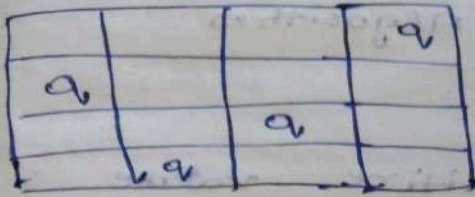 q
q
q
q